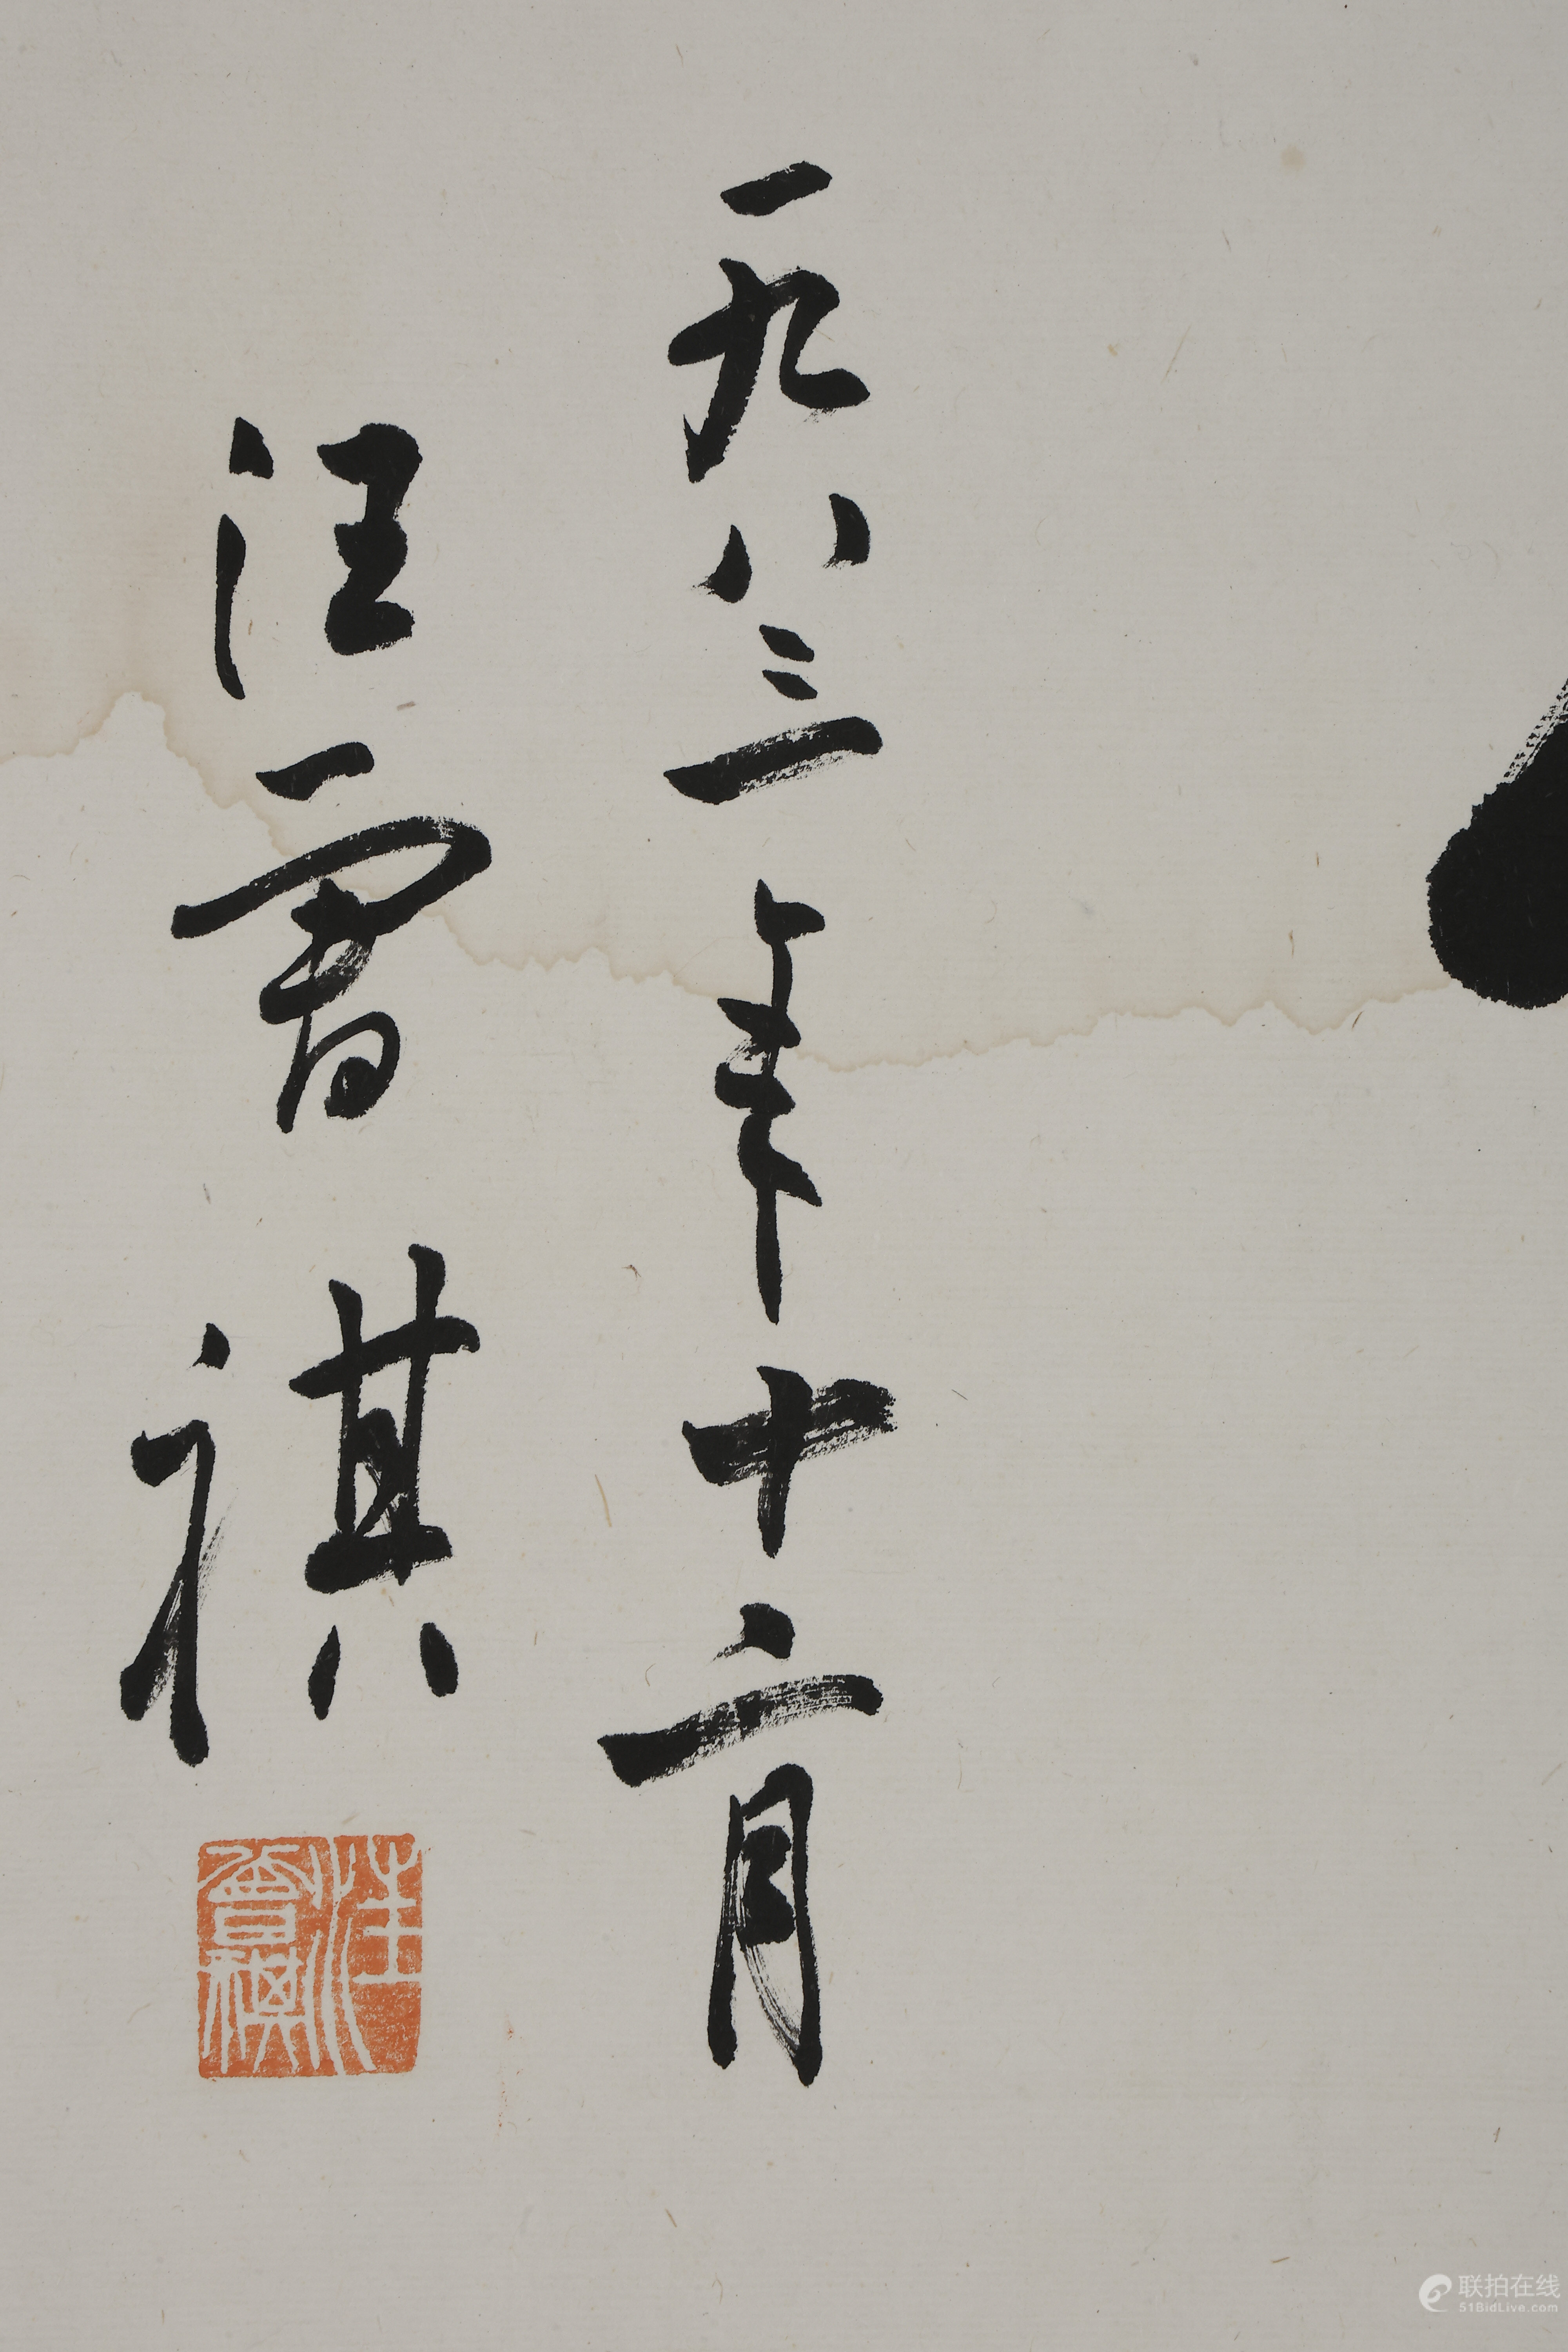 一九八三年十二月
汪曾祺
汪曾祺
联拍在线
51BidLive.com